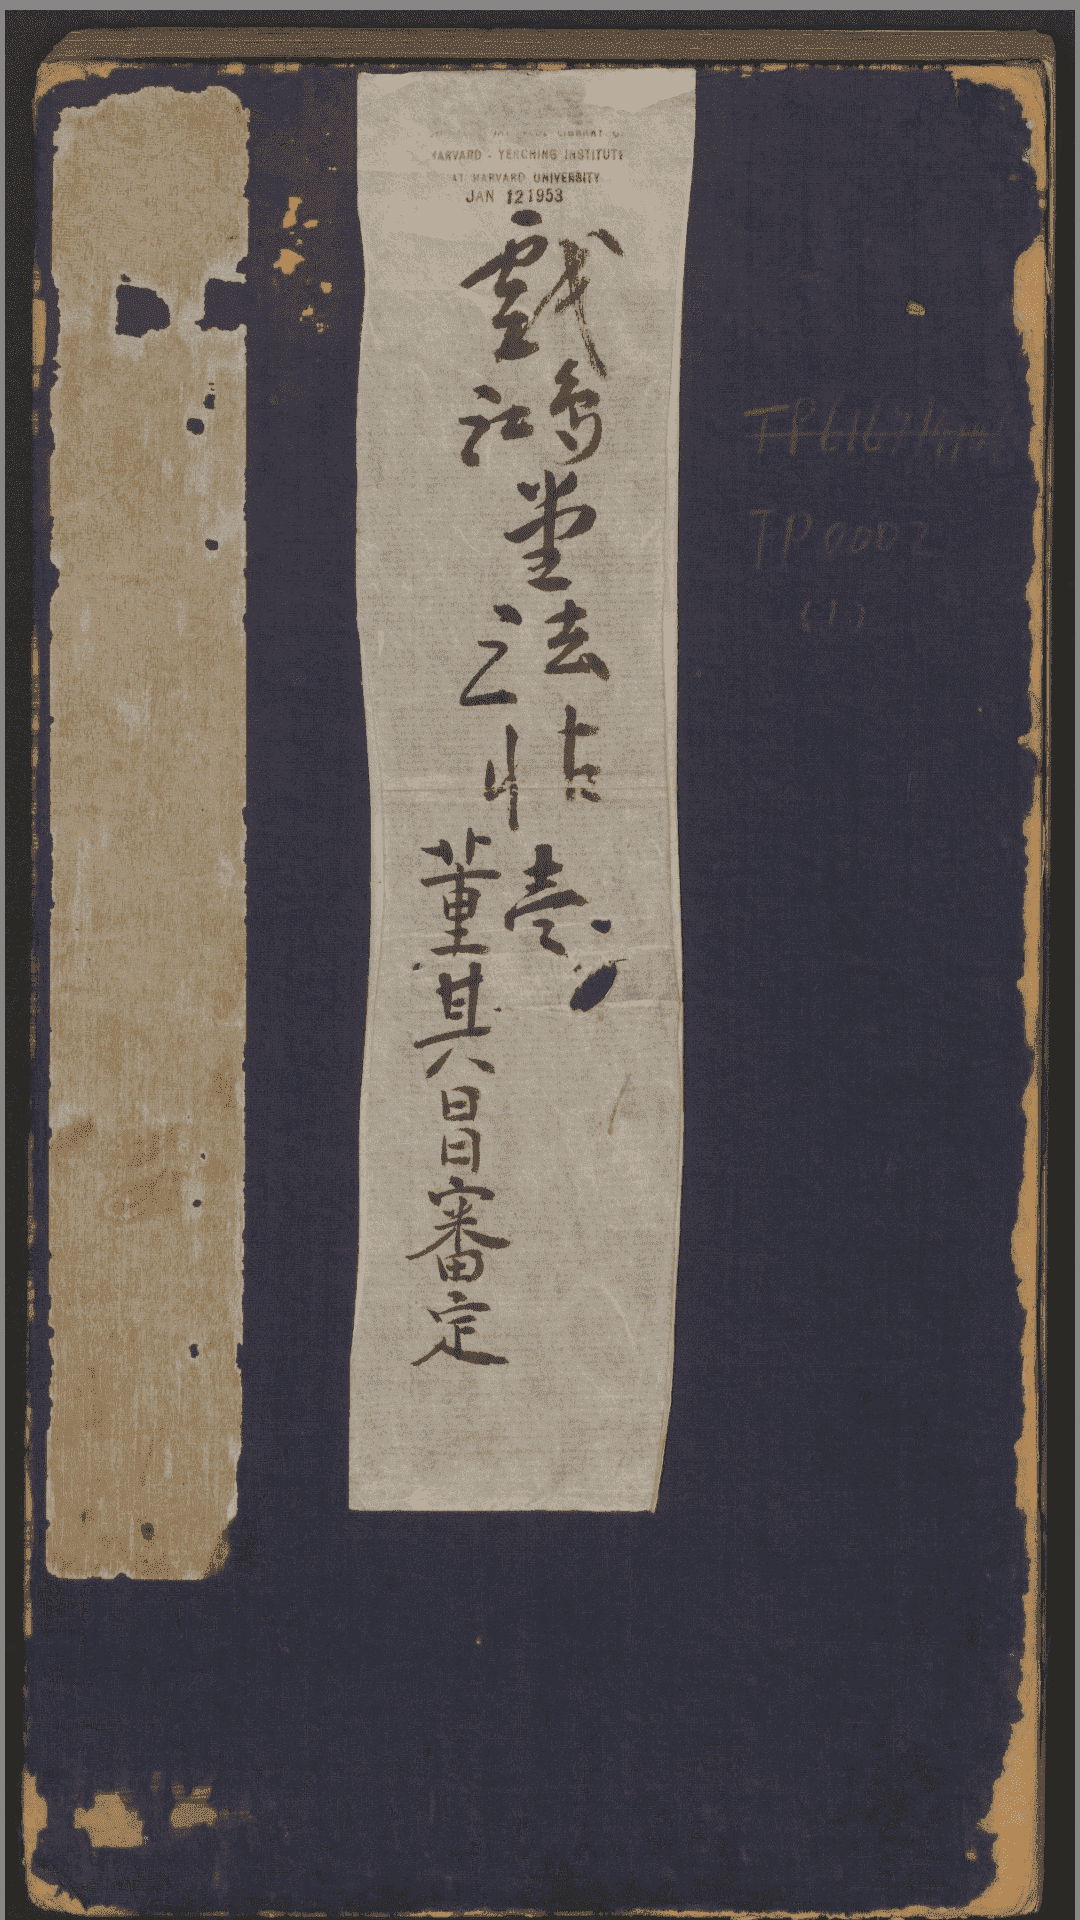 LIBRARY
HARVARD - YENCHING INSTITUTE
AT HARVARD UNIVERSITY
JAN 12 1953
戱鴻堂法帖 壹
董其昌審定
TP0002
(1)